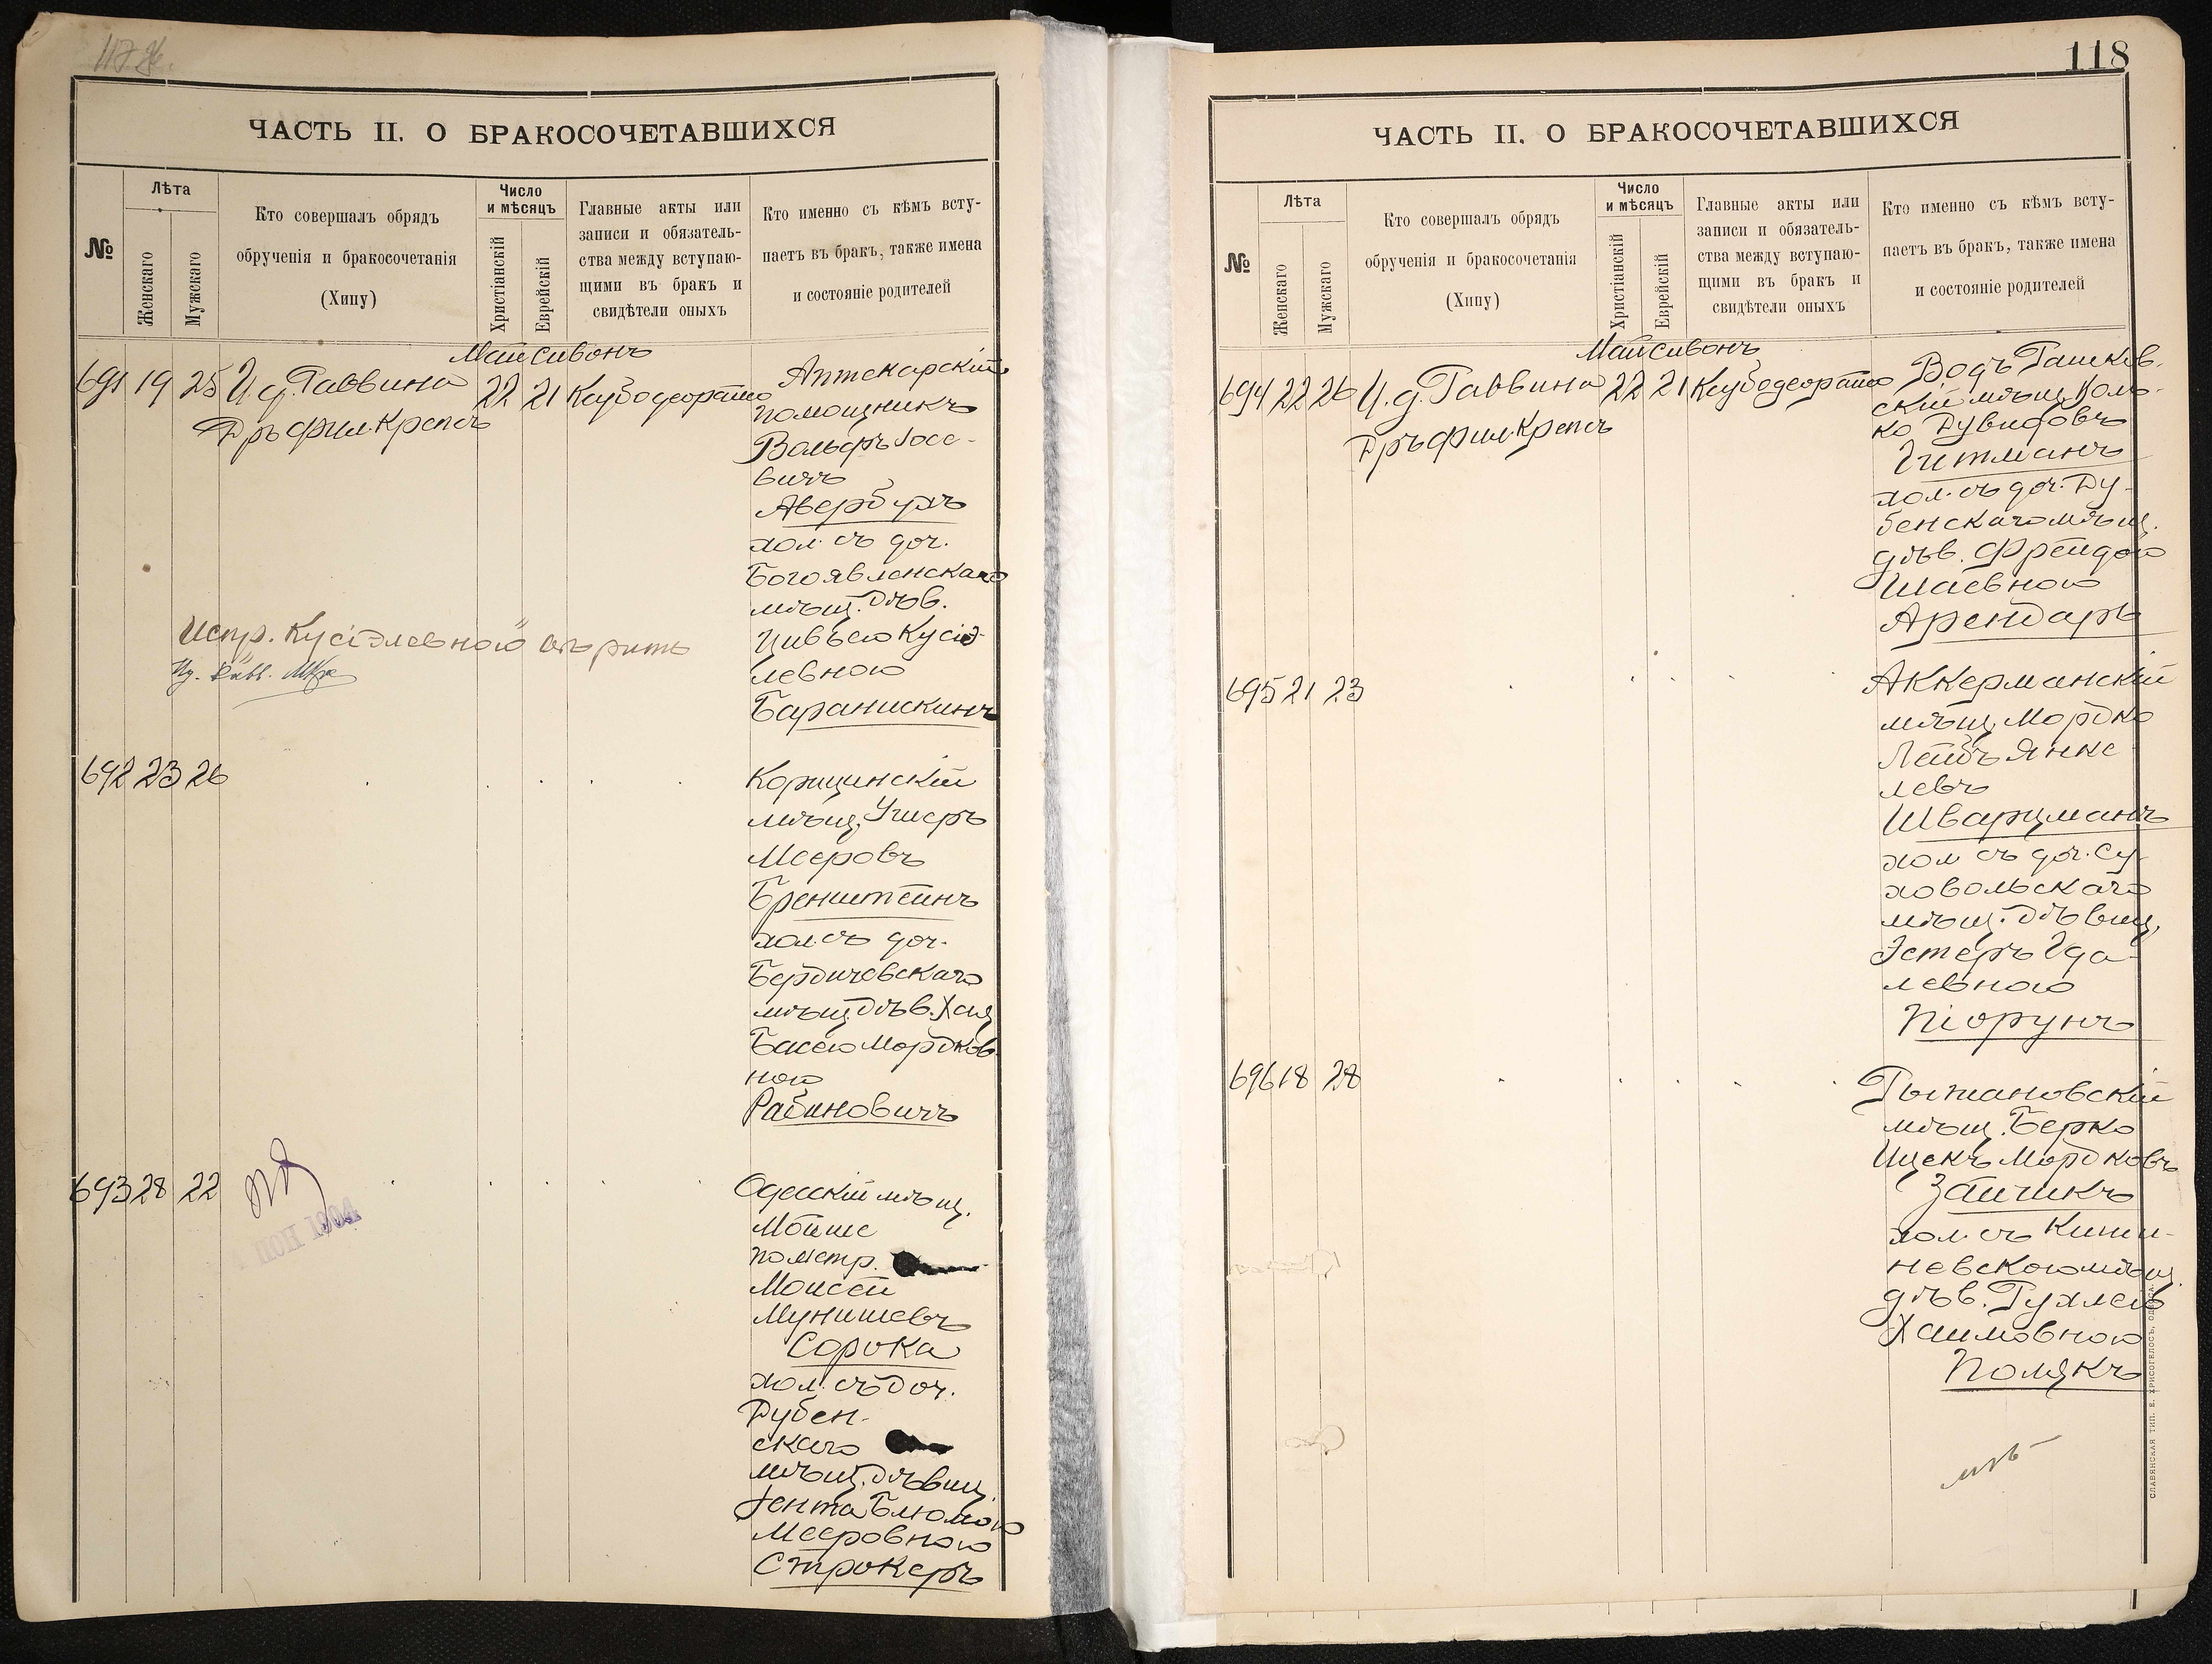 118
ЧАСТЬ II. О БРАКОСОЧЕТАВШИХСЯ
№
Лѣта
Женскаго
Мужскаго
Кто совершалъ обрядъ
обрученія и бракосочетанія
(Хипу)
Число
и мѣсяцъ
Христіанскій
Еврейскій
Главные акты или
записи и обязатель-
ства между вступаю-
щими въ бракъ и
свидѣтели оныхъ
Кто именно съ кѣмъ всту-
паетъ въ бракъ, также имена
и состояніе родителей
Май Сивонъ
691 19 25 И. д. Раввина 22 21
Дръ фил. Крепсъ
Аптекарскій
помощникъ
Вольфъ Іосе-
вичъ
Авербухъ
хол. съ доч.
Богоявленскаго
мѣщ. дѣв.
Цивьею Кусіэ-
левною
Баранискинъ
Испр. Кусіэлевной вѣрить
692 23 26
Корицинскій
мѣщ. Ушеръ
Мееровъ
Бренштейнъ
хол. съ доч.
Бердичевскаго
мѣщ. дѣв. Хая
Басею Мордков-
ною
Рабиновичъ
693 28 22
1904
Одесскій мѣщ.
Мойше
по метр.
Моисей
Мунишевъ
Сорока
хол. съ доч.
Дубен-
скаго
мѣщ. дѣвиц.
Іента Блюмою
Мееровною
Строкеръ
ЧАСТЬ II. О БРАКОСОЧЕТАВШИХСЯ
№
Лѣта
Женскаго
Мужскаго
Кто совершалъ обрядъ
обрученія и бракосочетанія
(Хипу)
Число
и мѣсяцъ
Христіанскій
Еврейскій
Главные акты или
записи и обязатель-
ства между вступаю-
щими въ бракъ и
свидѣтели оныхъ
Кто именно съ кѣмъ всту-
паетъ въ бракъ, также имена
и состояніе родителей
Май Сивонъ
694 22 26 И. д. Раввина 22 21
Дръ фил. Крепсъ
Водъ Рашков-
скій мѣщ.
ко Дувидовъ
Гитманъ
хол. съ доч. Ду-
бенскаго мѣщ.
дѣв. Фрейдою
Шаевною
Арендаръ
695 21 23
Аккерманскій
мѣщ. Мордко
Лейбъ Янке-
левъ
Шварцманъ
хол съ доч. Су-
ховольскаго
мѣщ. дѣвиц.
Эстеръ Гда-
левною
Піорунъ
696 18 28
Рыжановскій
мѣщ. Берко
Ицекъ Мордковъ
Зайчикъ
хол. съ Киши-
невскою мѣщ.
дѣв. Рухлею
Хаимовною
Полякъ
СЛАВЯНСКАЯ ТИП. Е. ХРИСОГЕЛОСЪ, ОДЕССА.